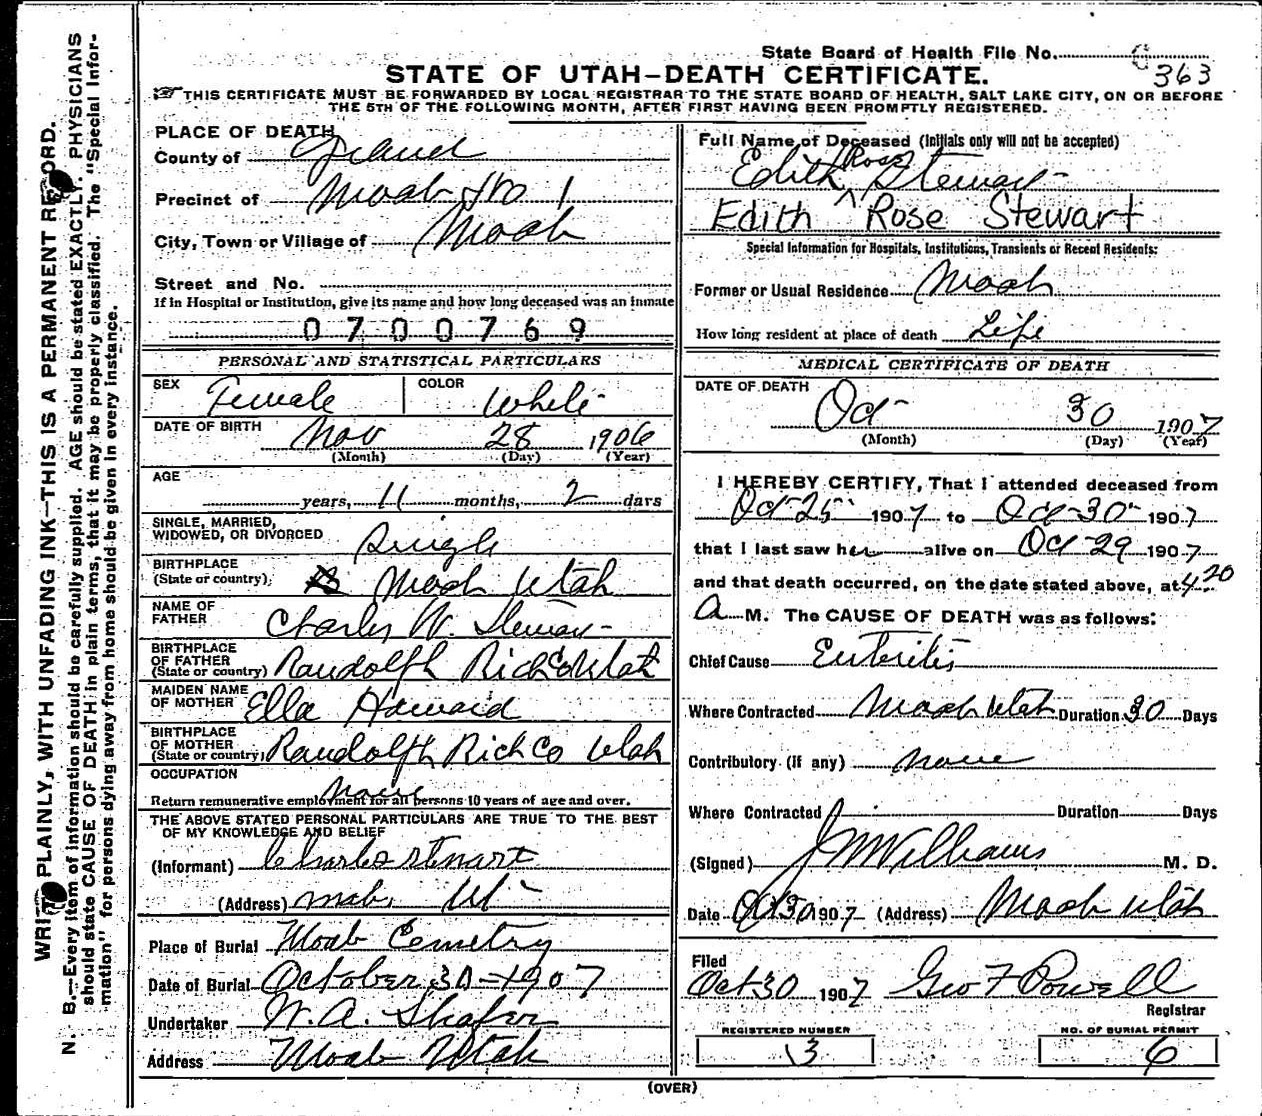 State Board of Health File No. 363
STATE OF UTAH—DEATH CERTIFICATE.
THIS CERTIFICATE MUST BE FORWARDED BY LOCAL REGISTRAR TO THE STATE BOARD OF HEALTH, SALT LAKE CITY, ON OR BEFORE
THE 5TH OF THE FOLLOWING MONTH, AFTER FIRST HAVING BEEN PROMPTLY REGISTERED.
WRITE PLAINLY, WITH UNFADING INK—THIS IS A PERMANENT RECORD.
N. B.—Every item of information should be carefully supplied. AGE should be stated EXACTLY. PHYSICIANS
should state CAUSE OF DEATH in plain terms, that it may be properly classified. The "Special Infor-
mation" for persons dying away from home should be given in every instance.
PLACE OF DEATH
County of Grand
Precinct of Moab No 1
City, Town or Village of Moab
Street and No.
If in Hospital or Institution, give its name and how long deceased was an inmate
0700769
PERSONAL AND STATISTICAL PARTICULARS
SEX Female COLOR White
DATE OF BIRTH Nov 28 1906
(Month) (Day) (Year)
AGE
years, 11 months, 2 days
SINGLE, MARRIED,
WIDOWED, OR DIVORCED Single
BIRTHPLACE
(State or country) Moab Utah
NAME OF
FATHER Charles W. Stewart
BIRTHPLACE
OF FATHER
(State or country) Randolph Rich Co Utah
MAIDEN NAME
OF MOTHER Ella Howard
BIRTHPLACE
OF MOTHER
(State or country) Randolph Rich Co Utah
OCCUPATION
None
Return remunerative employment for all persons 10 years of age and over.
THE ABOVE STATED PERSONAL PARTICULARS ARE TRUE TO THE BEST
OF MY KNOWLEDGE AND BELIEF
(Informant) Charles Stewart
(Address) Moab, Ut
Place of Burial Moab Cemetry
Date of Burial October 30 - 1907
Undertaker W. A. Shafer
Address Moab Utah
Full Name of Deceased (Initials only will not be accepted)
Edith Rose Stewart
Edith Rose Stewart
Special Information for Hospitals, Institutions, Transients or Recent Residents:
Former or Usual Residence Moab
How long resident at place of death Life
MEDICAL CERTIFICATE OF DEATH
DATE OF DEATH
Oct 30 1907
(Month) (Day) (Year)
I HEREBY CERTIFY, That I attended deceased from
Oct 25 1907 to Oct 30 1907
that I last saw her alive on Oct 29 1907
and that death occurred, on the date stated above, at 4.20
A M. The CAUSE OF DEATH was as follows:
Chief Cause Enteritis
Where Contracted Moab Utah Duration 30 Days
Contributory (if any) none
Where Contracted Duration Days
(Signed) J W Williams M. D.
Date Oct 30 1907 (Address) Moab Utah
Filed
Oct 30 1907 Geo F Powell
Registrar
REGISTERED NUMBER NO. OF BURIAL PERMIT
3 6
(OVER)